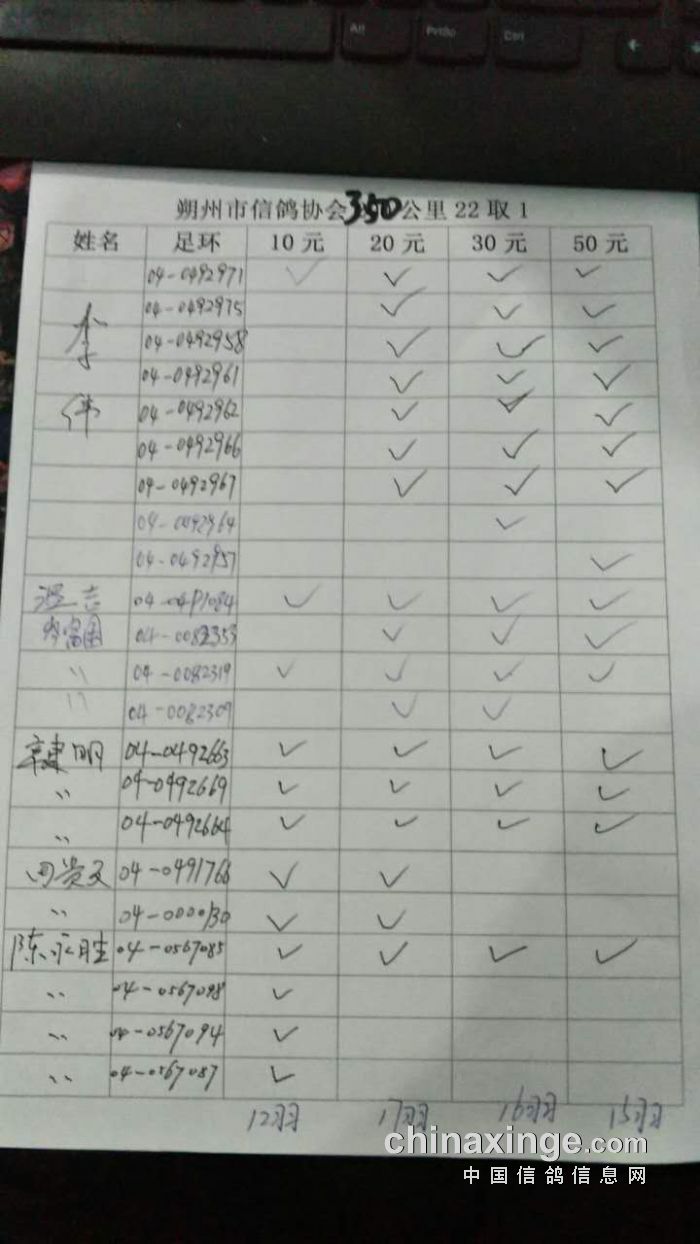 Alt
PrtSc
Ctrl
朔州市信鸽协会350公里22取1
姓名 足环 10元 20元 30元 50元
04-0492971 ✓ ✓ ✓ ✓
04-0492975 ✓ ✓ ✓
李 04-0492958 ✓ ✓ ✓
04-0492961 ✓ ✓ ✓
伟 04-0492962 ✓ ✓ ✓
04-0492966 ✓ ✓ ✓
04-0492967 ✓ ✓ ✓
04-0492964 ✓
04-0492957 ✓
志 04-0491084 ✓ ✓ ✓ ✓
富国 04-0082353 ✓ ✓ ✓
〃 04-0082319 ✓ ✓ ✓ ✓
〃 04-0082309 ✓ ✓
建明 04-0492663 ✓ ✓ ✓ ✓
〃 04-0492669 ✓ ✓ ✓ ✓
〃 04-0492664 ✓ ✓ ✓ ✓
贵文 04-0491766 ✓ ✓
〃 04-0000130 ✓ ✓
陈永胜 04-0567085 ✓ ✓ ✓ ✓
〃 04-0567098 ✓
〃 04-0567094 ✓
〃 04-0567087 ✓
12羽 17羽 16羽 15羽
chinaxinge.com
中国信鸽信息网